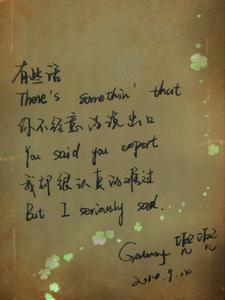 有些话
There's somethin' that
你不经意的说出口
You said you export
我却很认真的难过
But I seriously sad.